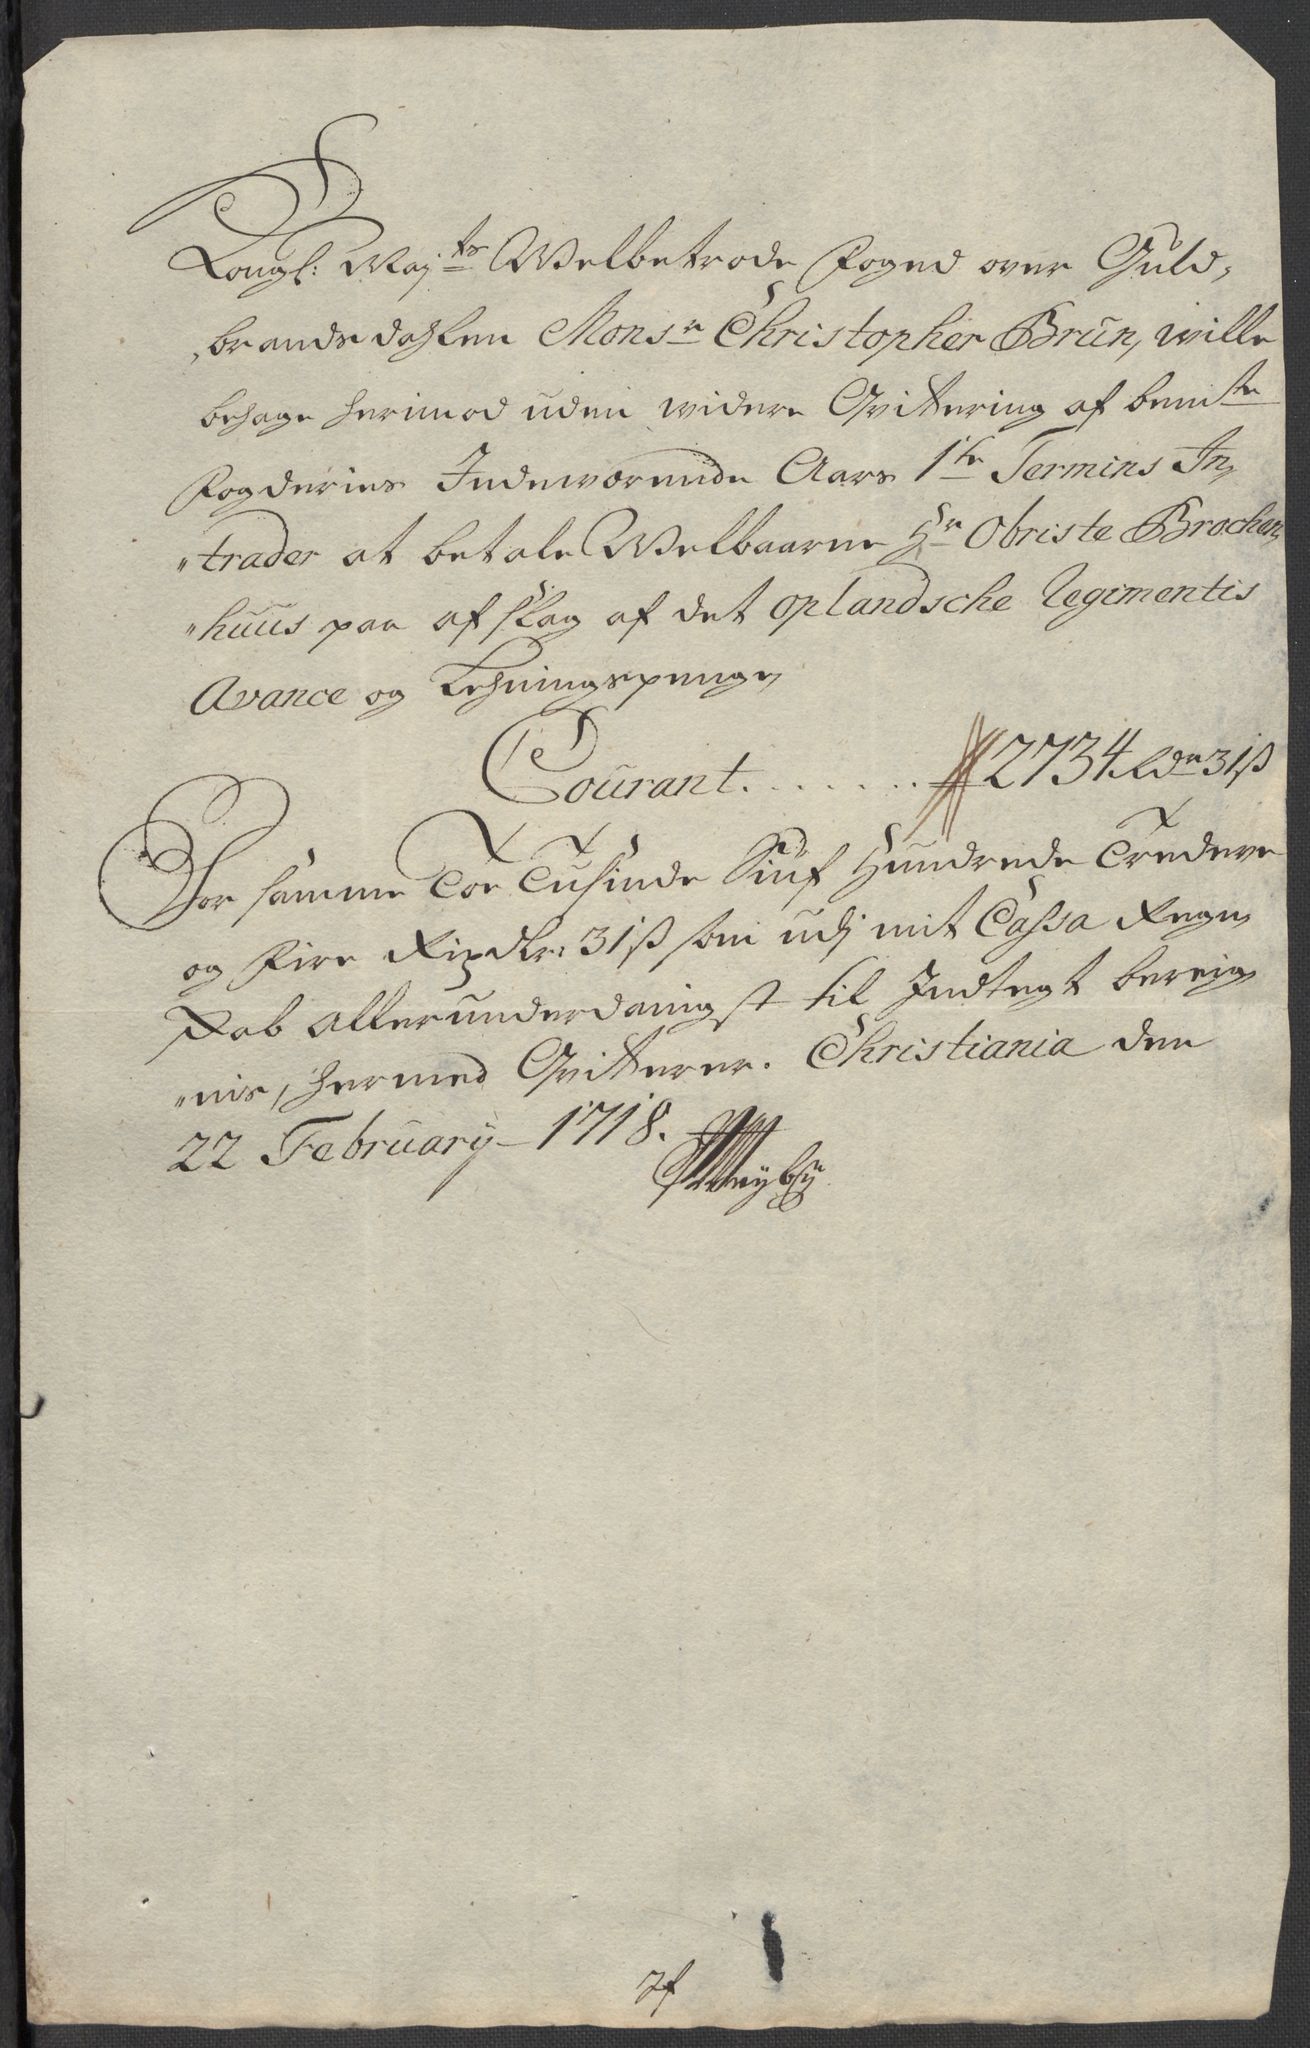 Kongl: Maj.ts Welbetrode Foged over Guld,
,brandsdahlen Monsr Christopher Brun, wille
behage herimod uden widere Qvittering af bemte
Fogderies Indeværende Aars 1te Termins In,
"trader at betale Welbaarne Hr Obriste Brochen,
"huus paa afslag af det oplandsche Regimentis
Avance og Lehningspenge,
Courant . . . . . . . 2734 Rdr 31 ß
For samme Toe Tusinde Siuf Hundrede Tredeve
og Fire Rixdlr: 31 ß som udj mit Cassa Regn,
skab allerunderdanigst til Indtegt bereig,
"nis, hermed Qvitterer. Christiania den
22 February 1718.